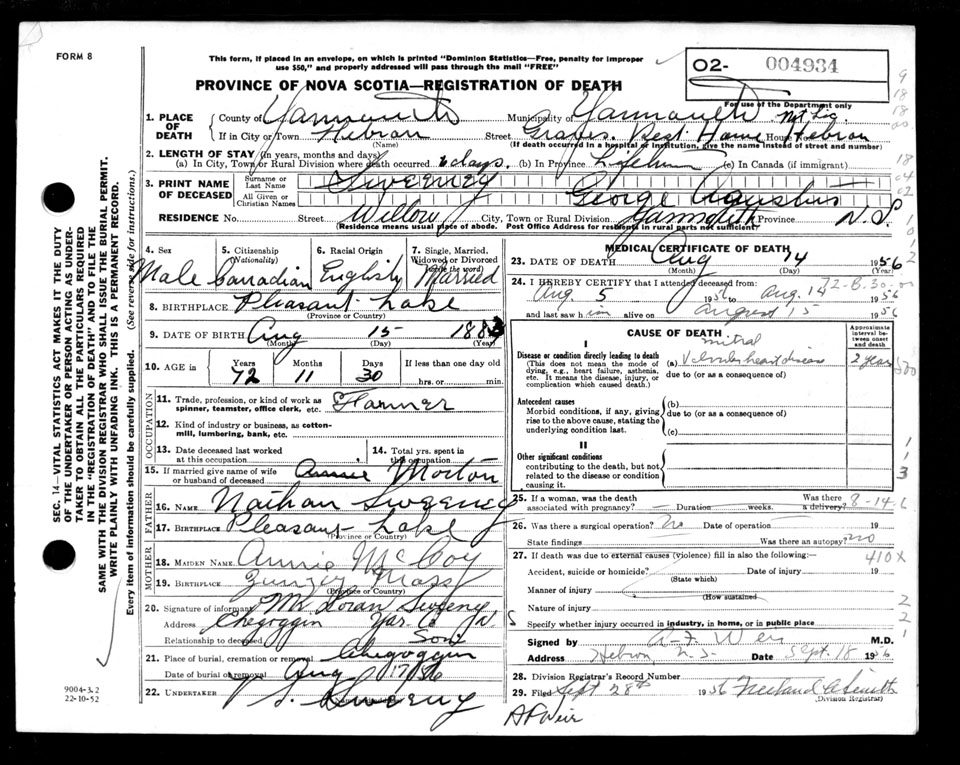 FORM 8
This form, if placed in an envelope, on which is printed "Dominion Statistics—Free, penalty for improper
use $50," and properly addressed will pass through the mail "FREE"
02- 004934
PROVINCE OF NOVA SCOTIA—REGISTRATION OF DEATH
For use of the Department only
1. PLACE OF DEATH County of Yarmouth Municipality of Yarmouth
If in City or Town Hebron Street Graves Rest Home House No. Hebron
(Name) (If death occurred in a hospital or institution, give the name instead of street and number)
2. LENGTH OF STAY (In years, months and days)
(a) In City, Town or Rural Division where death occurred 6 days. (b) In Province Lifetime (c) In Canada (if immigrant)
3. PRINT NAME OF DECEASED Surname or Last Name Sweeney
All Given or Christian Names George Augustus
RESIDENCE No. Street Willow City, Town or Rural Division Yarmouth Province N.S.
(Residence means usual place of abode. Post Office Address for residents in rural parts not sufficient)
4. Sex Male
5. Citizenship (Nationality) Canadian
6. Racial Origin English
7. Single, Married, Widowed or Divorced (write the word) Married
8. BIRTHPLACE Pleasant Lake
(Province or Country)
9. DATE OF BIRTH Aug 15 1883
(Month) (Day) (Year)
10. AGE Years 72 Months 11 Days 30 If less than one day
hrs. or min.
OCCUPATION
11. Trade, profession, or kind of work as spinner, teamster, office clerk, etc. Farmer
12. Kind of industry or business, as cotton-mill, lumbering, bank, etc.
13. Date deceased last worked at this occupation
14. Total yrs. spent in this occupation
15. If married give name of wife or husband of deceased Annie Morton
FATHER
16. NAME Nathan Sweeney
17. BIRTHPLACE Pleasant Lake
(Province or Country)
MOTHER
18. MAIDEN NAME Annie McCoy
19. BIRTHPLACE Mass
(Province or Country)
20. Signature of informant Mr Loran Sweeny
Address Chegoggin Yar. Co
Relationship to deceased Son
21. Place of burial, cremation or removal Chegoggin
Date of burial or removal Aug 17/56
22. UNDERTAKER Sweeny
MEDICAL CERTIFICATE OF DEATH
23. DATE OF DEATH Aug 14 1956
(Month) (Day) (Year)
24. I HEREBY CERTIFY that I attended deceased from:
Aug. 5 1956 to Aug. 14 1956
and last saw him alive on August 15 1956
CAUSE OF DEATH
Approximate interval between onset and death
I
Disease or condition directly leading to death
(This does not mean the mode of dying, e.g., heart failure, asthenia, etc. It means the disease, injury, or complication which caused death.)
(a) mitral Valvular heart disease 2 years
due to (or as a consequence of)
Antecedent causes
Morbid conditions, if any, giving rise to the above cause, stating the underlying condition last.
(b)
due to (or as a consequence of)
(c)
II
Other significant conditions
contributing to the death, but not related to the disease or condition causing it.
25. If a woman, was the death associated with pregnancy? Duration weeks. Was there a delivery?
8-14
26. Was there a surgical operation? No Date of operation 19
State findings Was there an autopsy? no
27. If death was due to external causes (violence) fill in also the following:—
410X
Accident, suicide or homicide? Date of injury 19
(State which)
Manner of injury
(How sustained)
Nature of injury
Specify whether injury occurred in industry, in home, or in public place
Signed by A. F. Weir M.D.
Address Hebron N.S. Date Sept. 18 1956
28. Division Registrar's Record Number
29. Filed Sept 28th 1956
(Division Registrar)
AF Weir
SEC. 14—VITAL STATISTICS ACT MAKES IT THE DUTY
OF THE UNDERTAKER OR PERSON ACTING AS UNDER-
TAKER TO OBTAIN ALL THE PARTICULARS REQUIRED
IN THE "REGISTRATION OF DEATH" AND TO FILE THE
SAME WITH THE DIVISION REGISTRAR WHO SHALL ISSUE THE BURIAL PERMIT.
WRITE PLAINLY WITH UNFADING INK. THIS IS A PERMANENT RECORD.
Every item of information should be carefully supplied. (See reverse side for instructions.)
9004-3.2
22-10-52